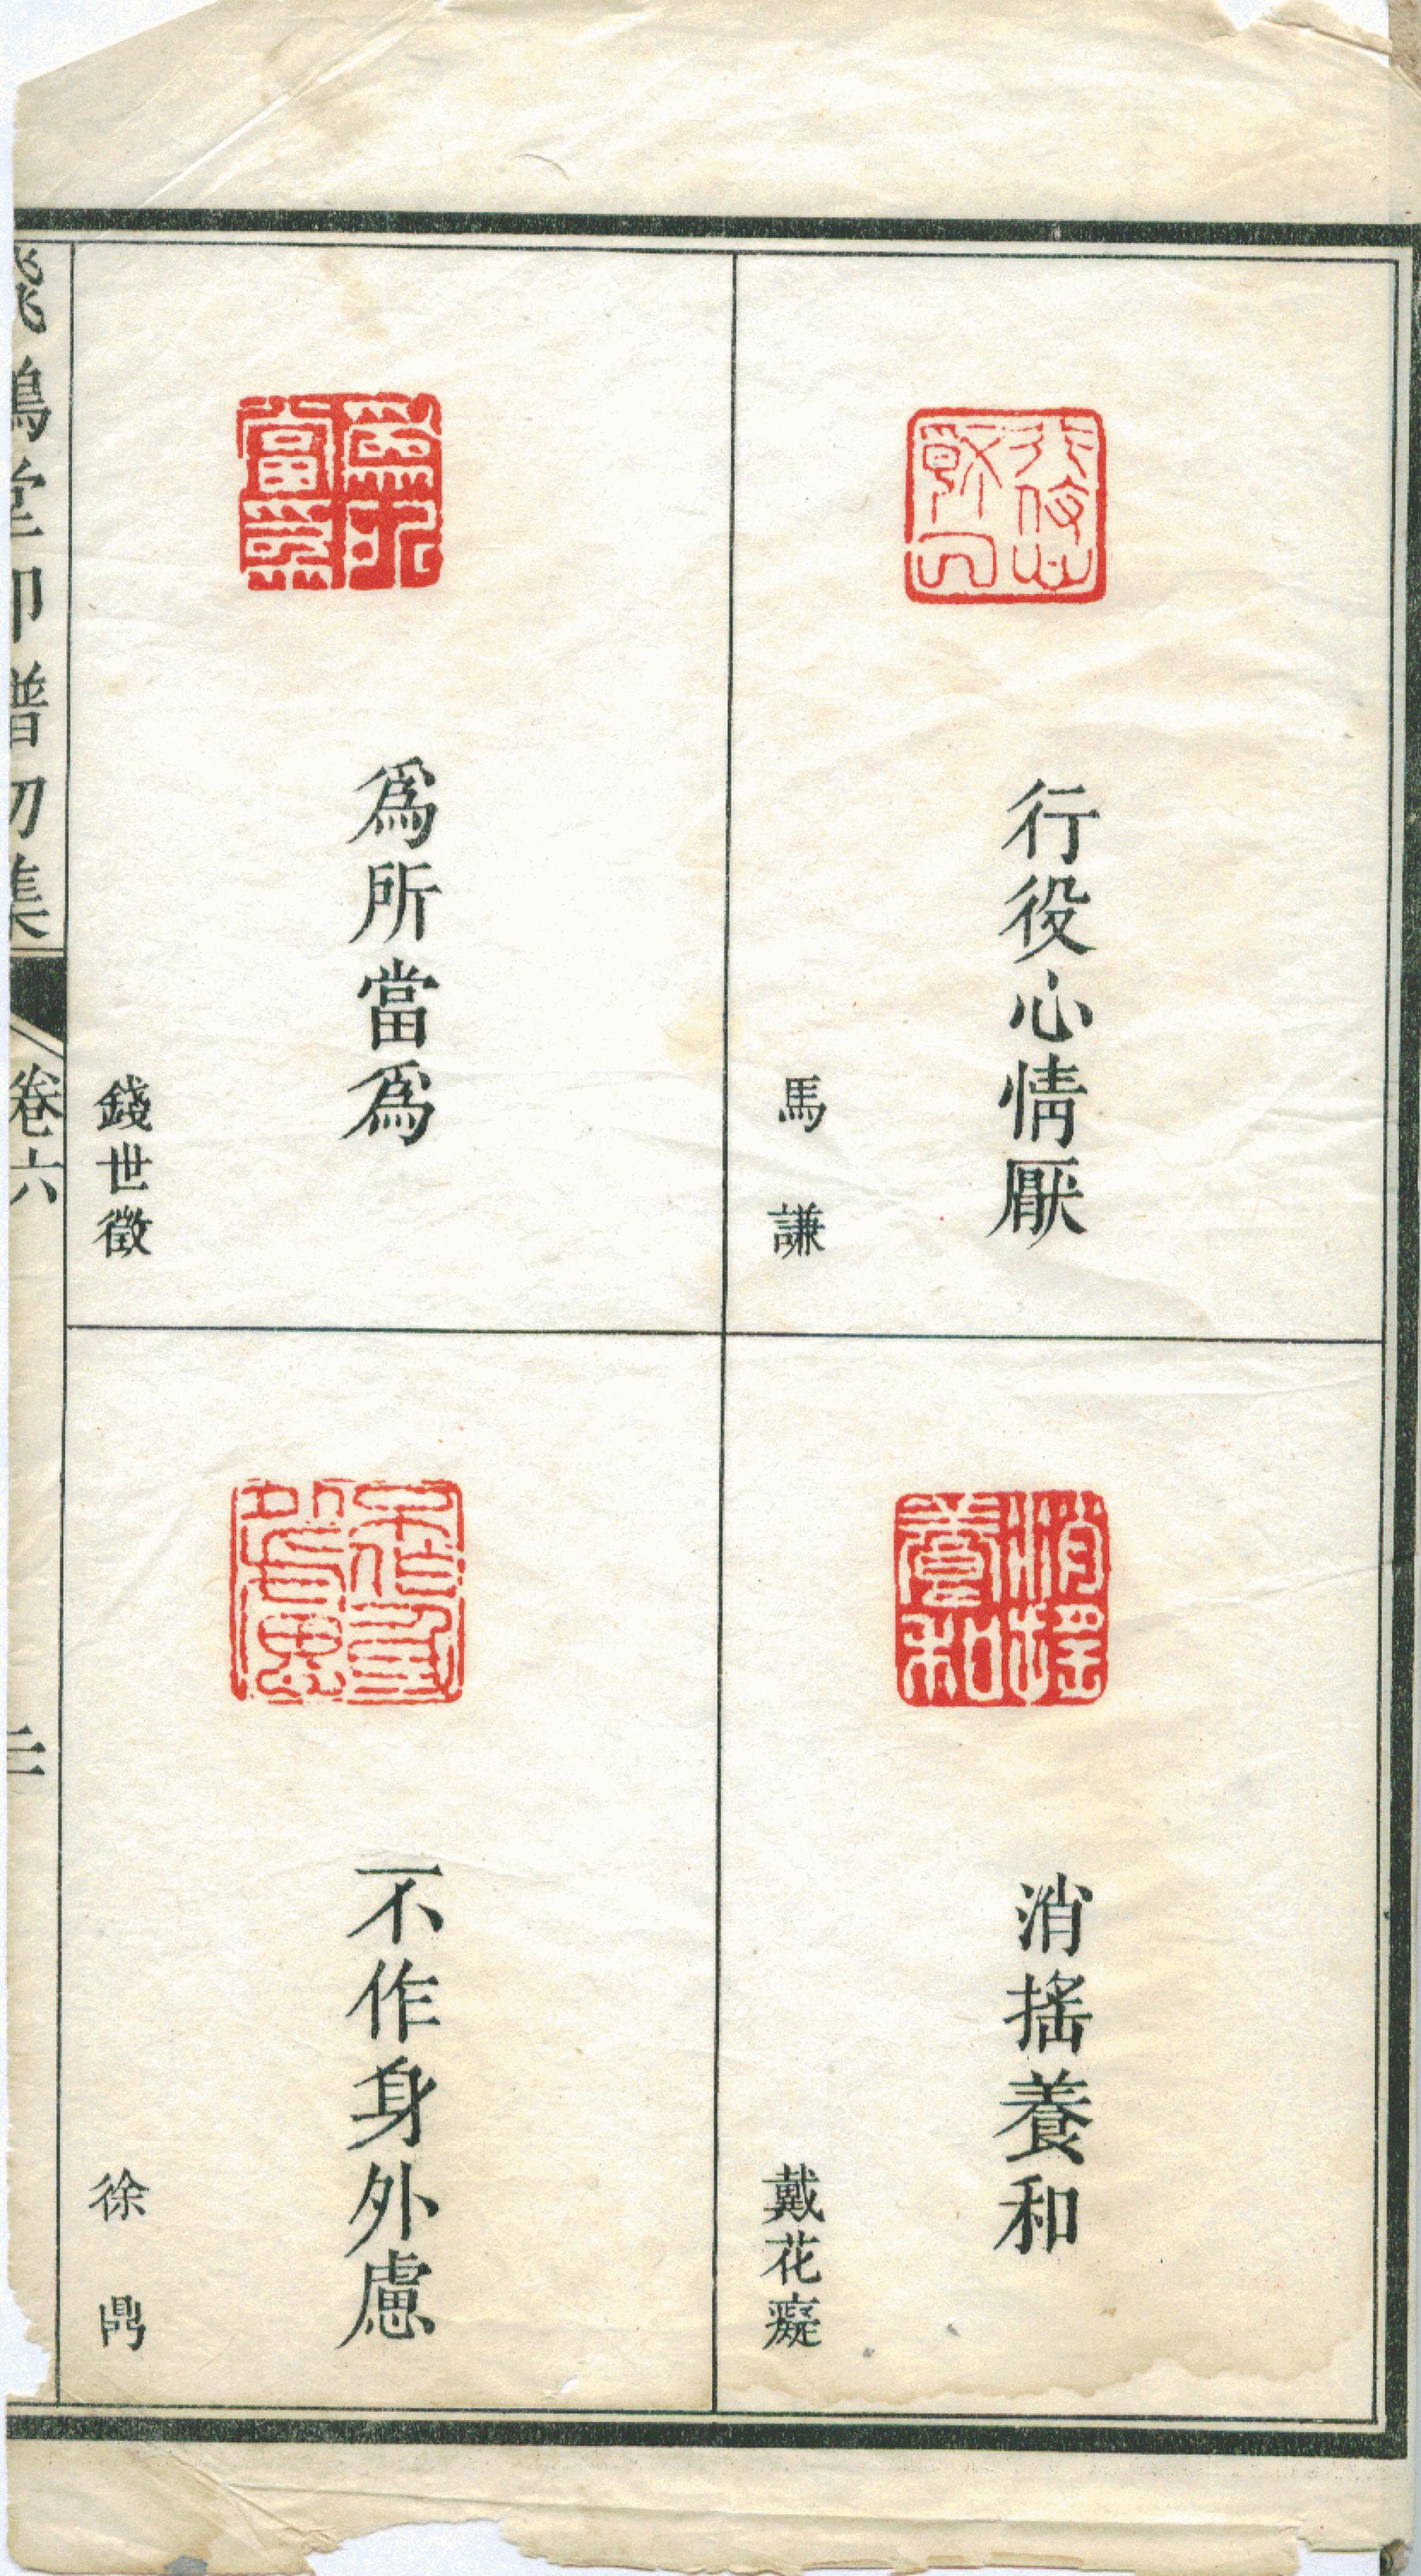 行役心情厭
馬謙
消搖養和
戴花癡
爲所當爲
錢世徵
不作身外慮
徐鼎
飛鴻堂印譜初集
卷六